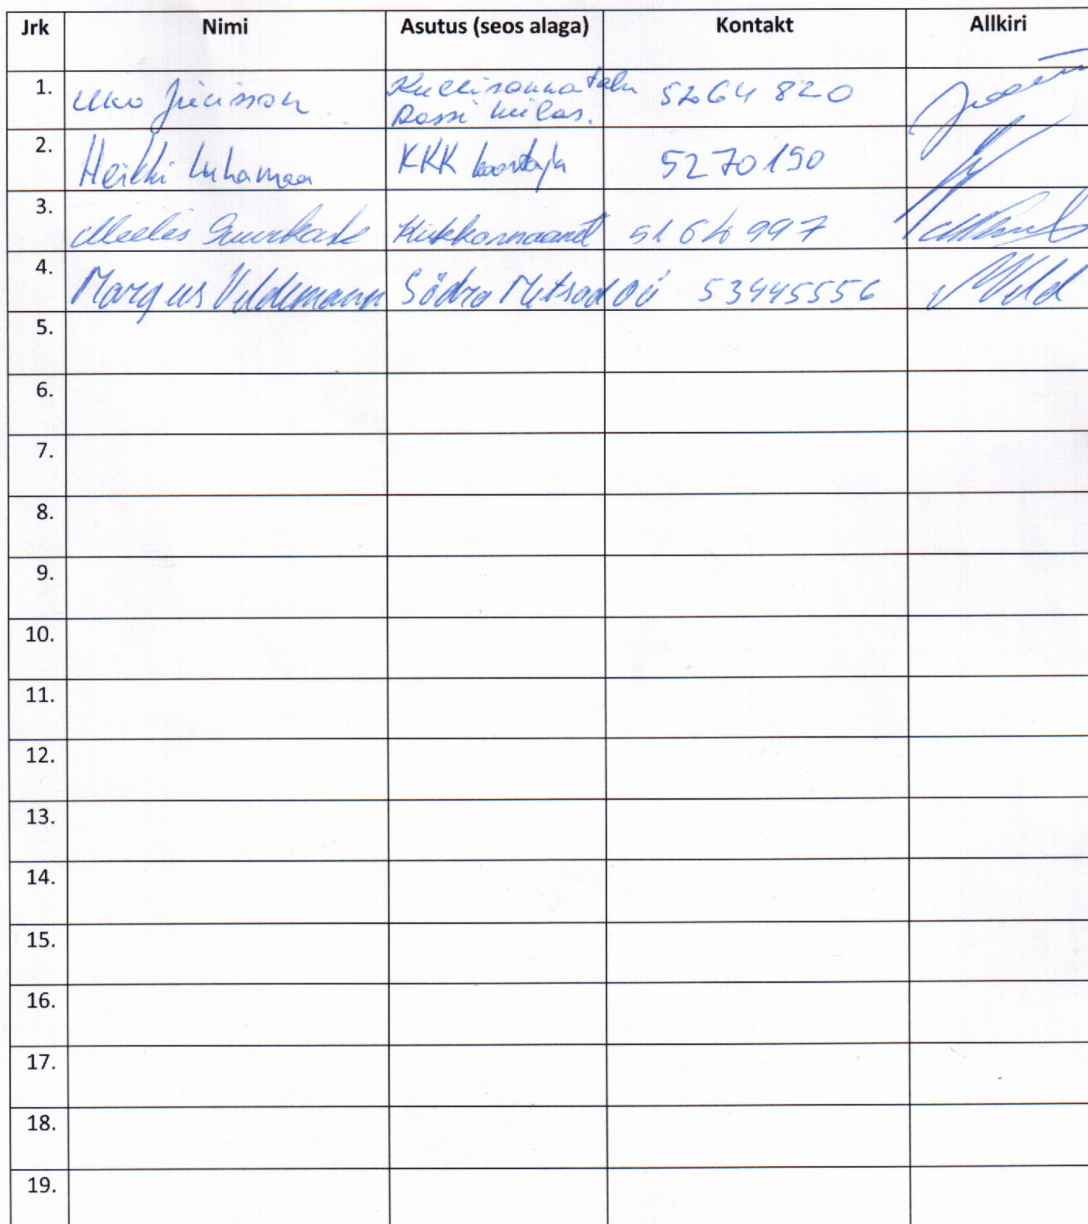 Jrk Nimi Asutus (seos alaga) Kontakt Allkiri
1. Jürisson talu 5264 820
Rossi külas.
2. Heikki Luhamaa KKK koostaja 5270150
3. Meelis Suurkask 5164997
4. Margus Veldemann Södra Metsad OÜ 53445556
5.
6.
7.
8.
9.
10.
11.
12.
13.
14.
15.
16.
17.
18.
19.